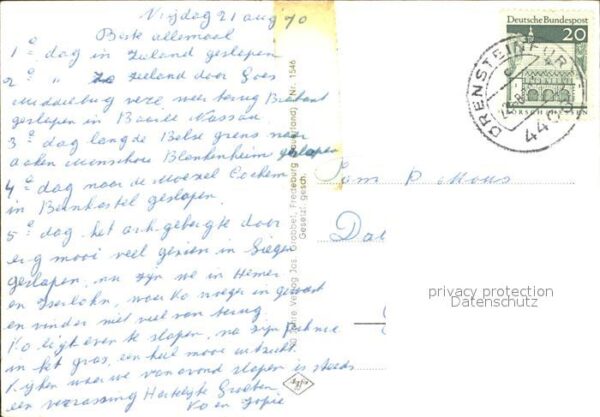 Vrijdag 21 aug 70
Beste allemaal
1e dag in Zeeland geslapen
2e " Zeeland door Goes
Middelburg Vere, weer terug Brabant
geslapen in Baarle Nassau
3e dag langs de Belse grens naar
Aaken Monschau Blankenheim geslapen
4e dag naar de Moezel Cochem
in Bernkastel geslapen
5e dag het gebergte door
erg mooi veel gezien in Siegen
geslapen, nu zijn we in Hemer
en Iserlohn, waar Ko vroeger in
en vinden niet veel van terug
Ko ligt even te slapen, na zijn
in het gras, een heel mooi uitzicht
Kijken waar we vanavond slapen is steeds
een verrassing Hartelijke Groeten
Ko en Sopie
Deutsche Bundespost
20
LORSCH HESSEN
DRENSTEINFURT
4406
Fam P
Nr. 1546
Verlag Jos. Grobbel, Fredeburg (Sauerland)
Gesetzl. gesch.
privacy protection
Datenschutz